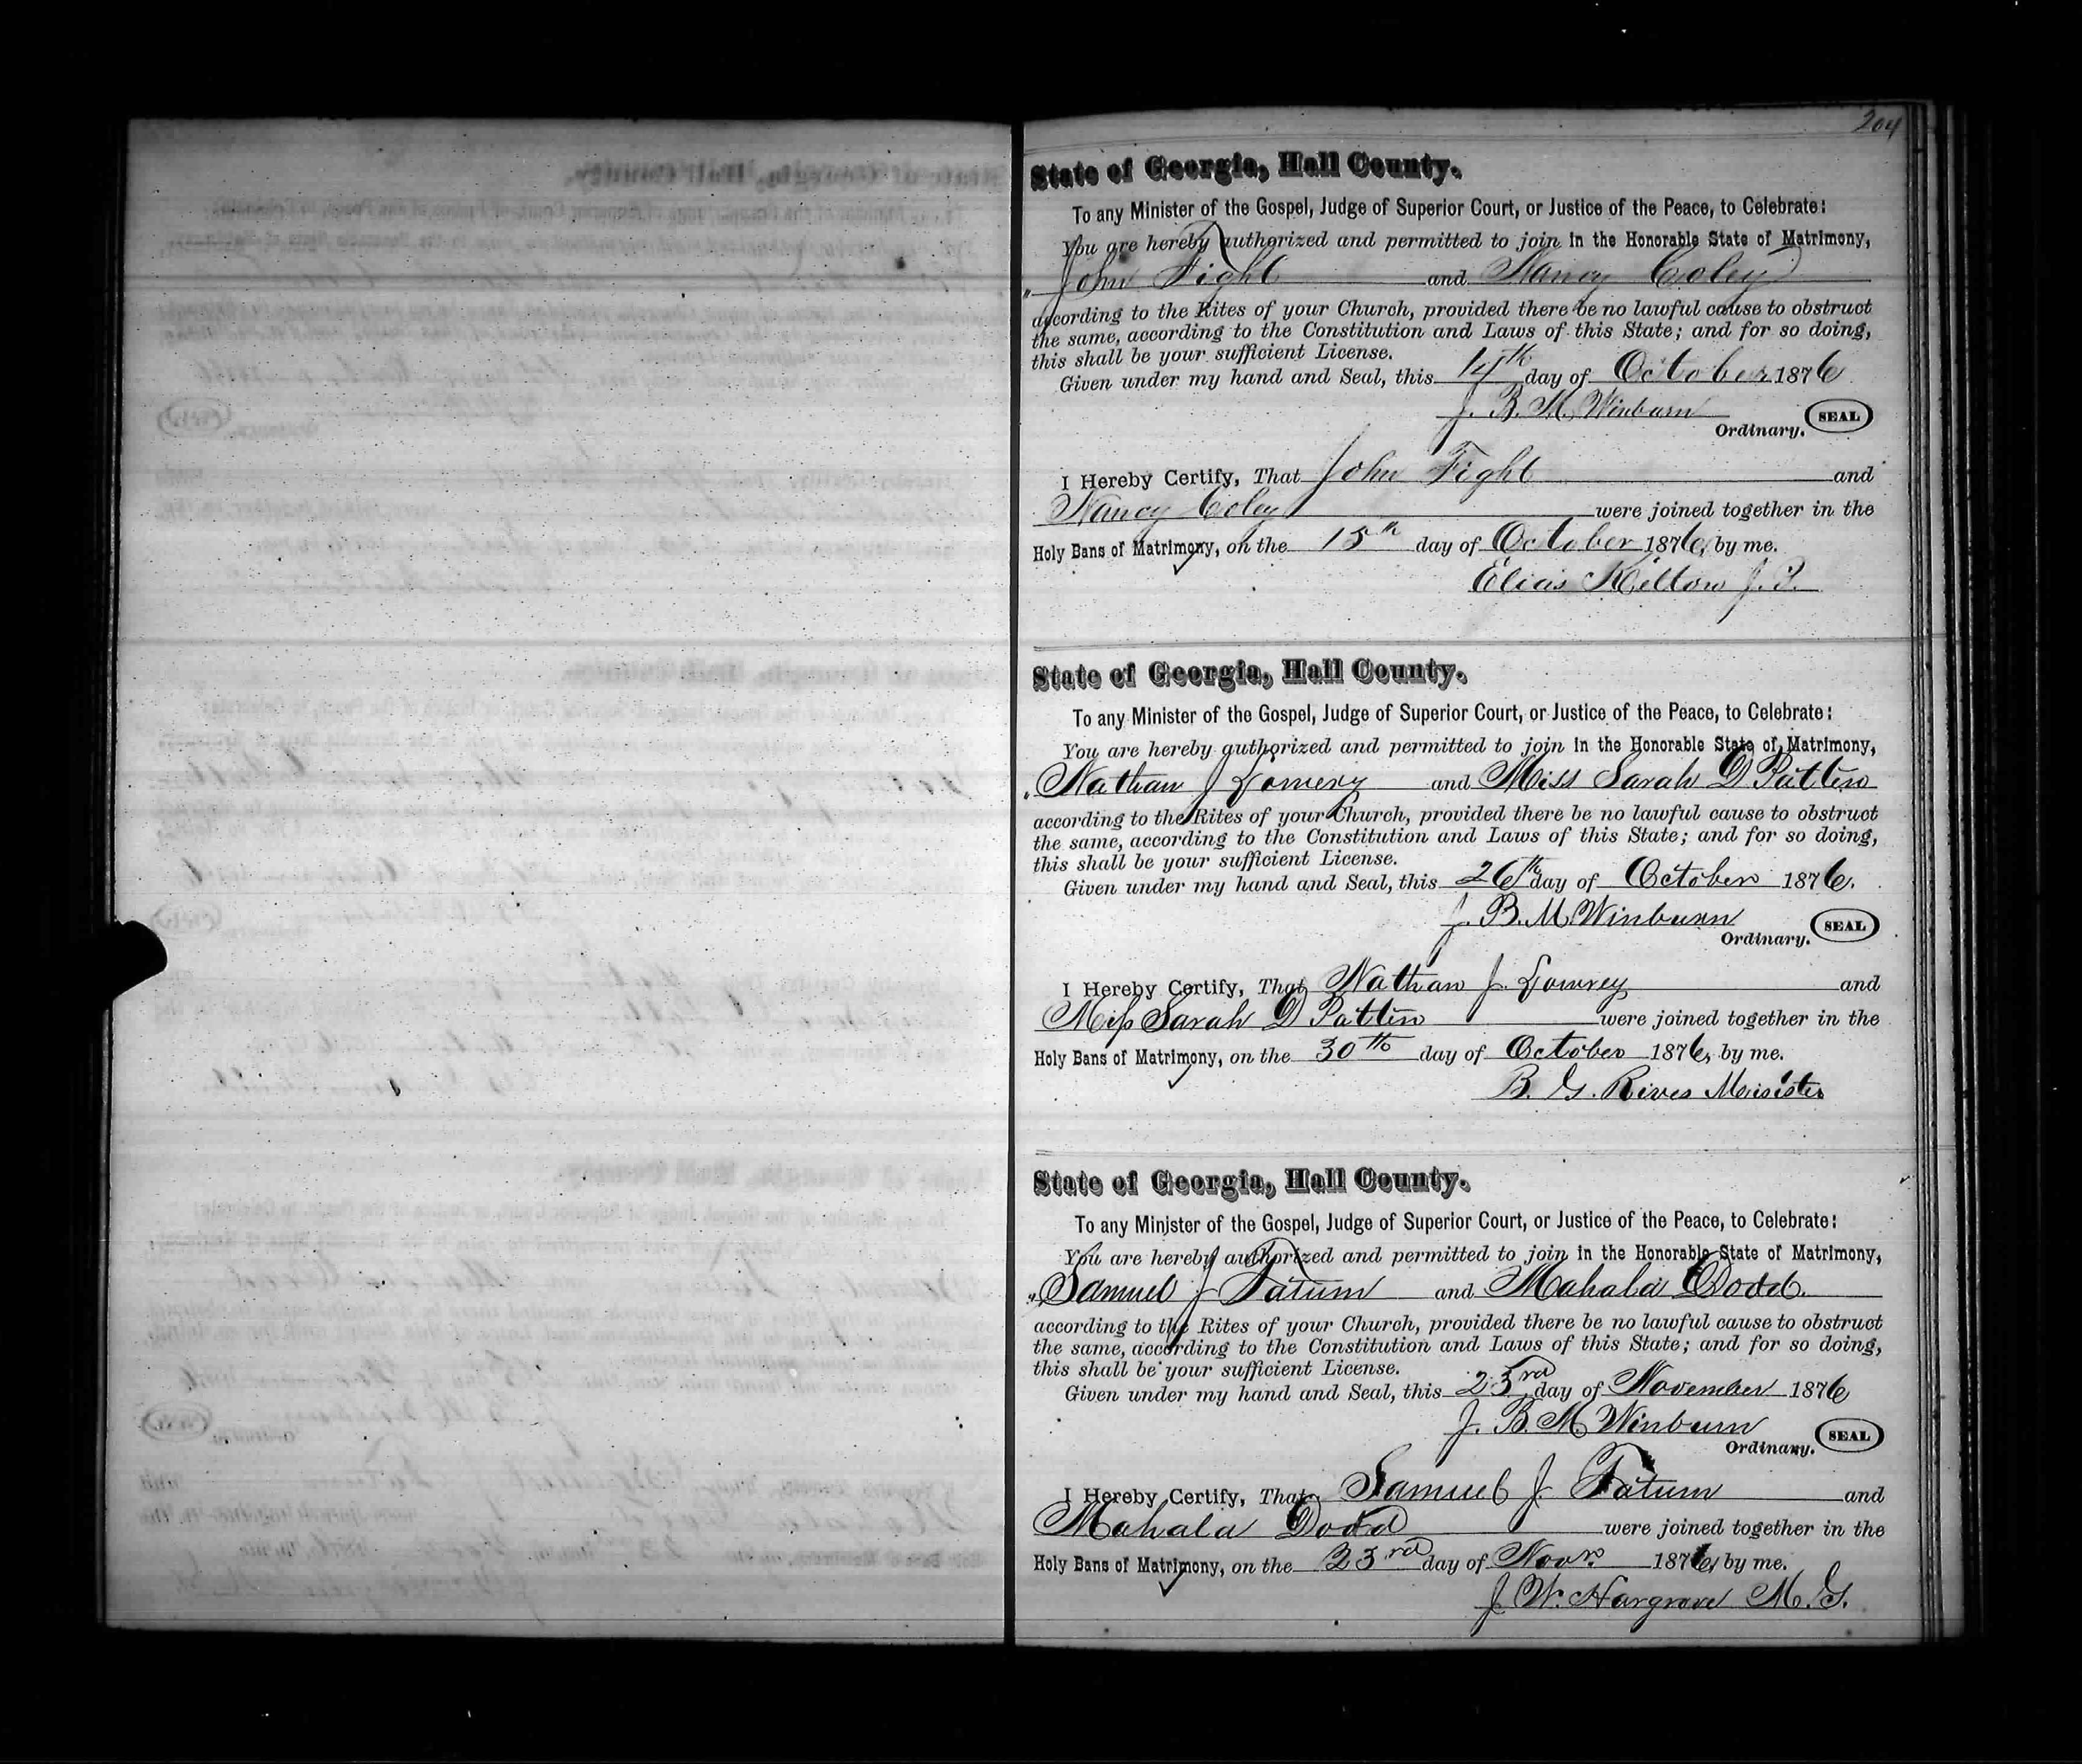 204
State of Georgia, Hall County.
To any Minister of the Gospel, Judge of Superior Court, or Justice of the Peace, to Celebrate:
You are hereby authorized and permitted to join in the Honorable State of Matrimony,
John Fight and Nancy Coley
according to the Rites of your Church, provided there be no lawful cause to obstruct
the same, according to the Constitution and Laws of this State; and for so doing,
this shall be your sufficient License.
Given under my hand and Seal, this 14th day of October 1876
J. B. M. Winburn SEAL
Ordinary.
I Hereby Certify, That John Fight and
Nancy Coley were joined together in the
Holy Bans of Matrimony, on the 15th day of October 1876, by me.
Elias Kelton J. P.
State of Georgia, Hall County.
To any Minister of the Gospel, Judge of Superior Court, or Justice of the Peace, to Celebrate:
You are hereby authorized and permitted to join in the Honorable State of Matrimony,
Nathan J and Miss Sarah D Patten
according to the Rites of your Church, provided there be no lawful cause to obstruct
the same, according to the Constitution and Laws of this State; and for so doing,
this shall be your sufficient License.
Given under my hand and Seal, this 26th day of October 1876.
J. B. M. Winburn SEAL
Ordinary.
I Hereby Certify, That Nathan J. and
Miss Sarah D Patten were joined together in the
Holy Bans of Matrimony, on the 30th day of October 1876, by me.
B. G. Rives Minister
State of Georgia, Hall County.
To any Minister of the Gospel, Judge of Superior Court, or Justice of the Peace, to Celebrate:
You are hereby authorized and permitted to join in the Honorable State of Matrimony,
Samuel J Tatum and Mahala Dodd.
according to the Rites of your Church, provided there be no lawful cause to obstruct
the same, according to the Constitution and Laws of this State; and for so doing,
this shall be your sufficient License.
Given under my hand and Seal, this 23rd day of November 1876
J. B. M. Winburn SEAL
Ordinary.
I Hereby Certify, That Samuel J. Tatum and
Mahala Dodd were joined together in the
Holy Bans of Matrimony, on the 23rd day of Novr. 1876, by me.
J. W. Hargrove M. G.